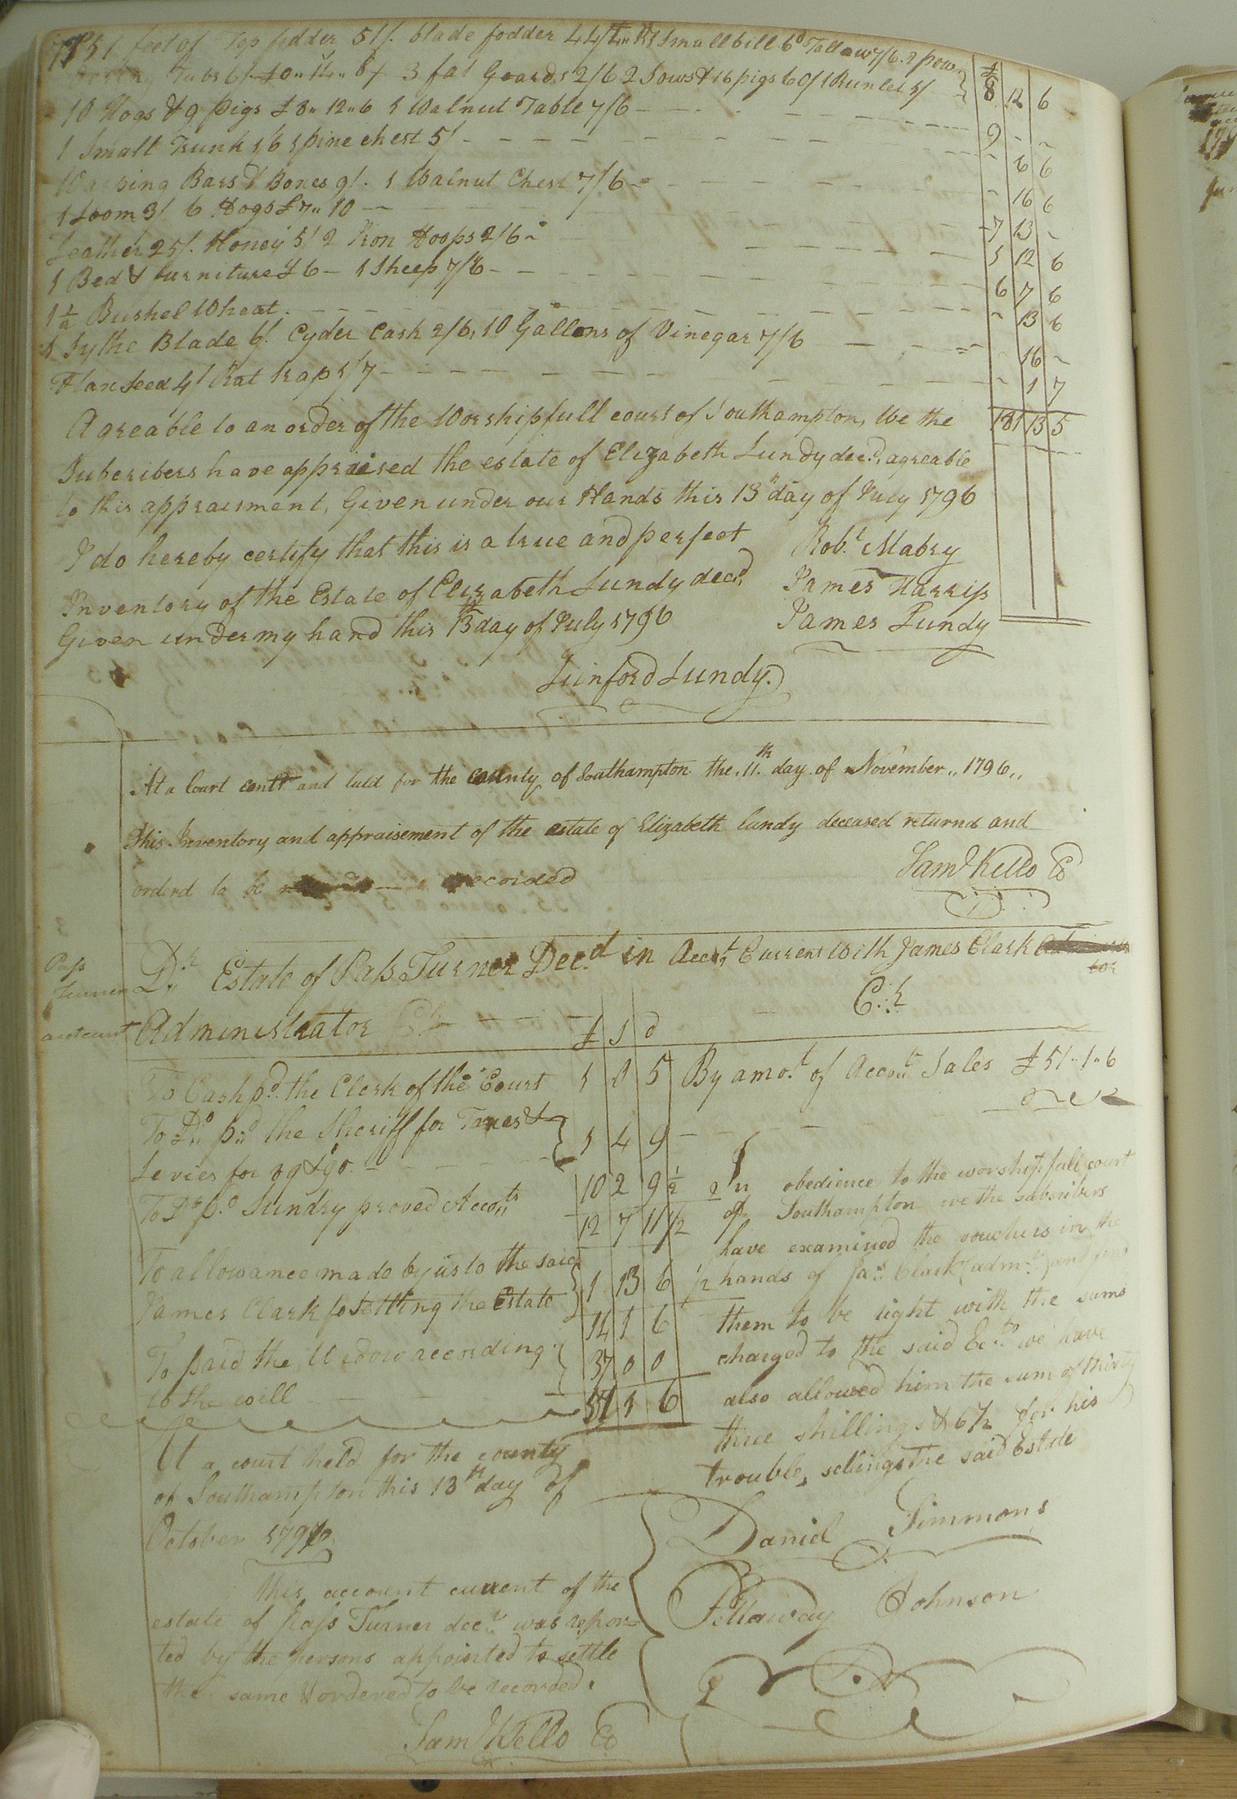 feet of Top fodder 51/. blade fodder 44/ 1 Small bill 6d Tallow 7/6. 2 pow
Tubs 6/. 3 fat Goards 2/6 2 Sows & 16 pigs 60/ 1 Runlet 5/ £8 12 6
10 Hogs & 9 pigs £8" 12" 6 1 Walnut Table 7/6 — 9 - -
1 Small Trunk 1/6 1 pine chest 5/ - - - 6 6
Warping Bars & Boxes 9/. 1 Walnut Chest 7/6 - - 16 6
1 Loom 3/ 6 Hogs £7" 10 - 7 13 -
Leather 25/. Honey 5/ 2 Iron Hoops 2/6 - 1 12 6
1 Bed & furniture £6 - 1 Sheep 7/6 - - 6 7 6
1 1/2 Bushel Wheat - - - 13 6
1 Sythe Blade 6/. Cyder Cask 2/6, 10 Gallons of Vinegar 7/6 - - 16 -
Flax Seed 4/ Rat trap 1/7 - - - 1 7
Agreable to an order of the Worshipfull court of Southampton, We the 181 13 5
Subcribers have appraised the estate of Elizabeth Lundy decd, agreable
to this appraisment, Given under our Hands this 13th day of July 1796
I do hereby certify that this is a true and perfect Robt Mabry
Inventory of the Estate of Elizabeth Lundy decd, James Harriss
Given under my hand this 13th day of July 1796 James Lundy
Linford Lundy.
At a Court contd and held for the county of Southampton the 11th day of November 1796,,
This Inventory and appraisement of the estate of Elizabeth Lundy deceased returnd and
orderd to be recorded Saml Kello CC
Pass
Turner
account
Dr Estate of Pass Turner Decd in Acct Current With James Clark
Administrator Cr
£ S d
To Cash pd the Clerk of the Court 1 0 5 By amot of Accot Sales £51" 1" 6
To Do pd the Sheriff for Taxes &
Levies for 89 & 90 - - 1 4 9
To Do pd Sundry proved Accots 10 2 9 1/2
12 7 11 1/2
To allowance made by us to the said
James Clark for Setting the Estate 1 13 6 1/2
14 1 6
To paid the Widow according
to the will 37 0 0
51 1 6
In obedience to the worshipfull court
of Southampton we the subcribers
have examined the vouchers in the
hands of Jas Clark admr
them to be right with the sums
charged to the said we have
also allowed him the sum of thirty
three shillings & 6 1/2 for his
trouble, setting the said Estate
Daniel Simmons
Pettaway Johnson
At a court held for the county
of Southampton this 13th day of
October 1796
This account current of the
estate of Pass Turner decd was repor=
ted by the persons appointed to settle
the same & ordered to be recorded.
Saml Kello CC